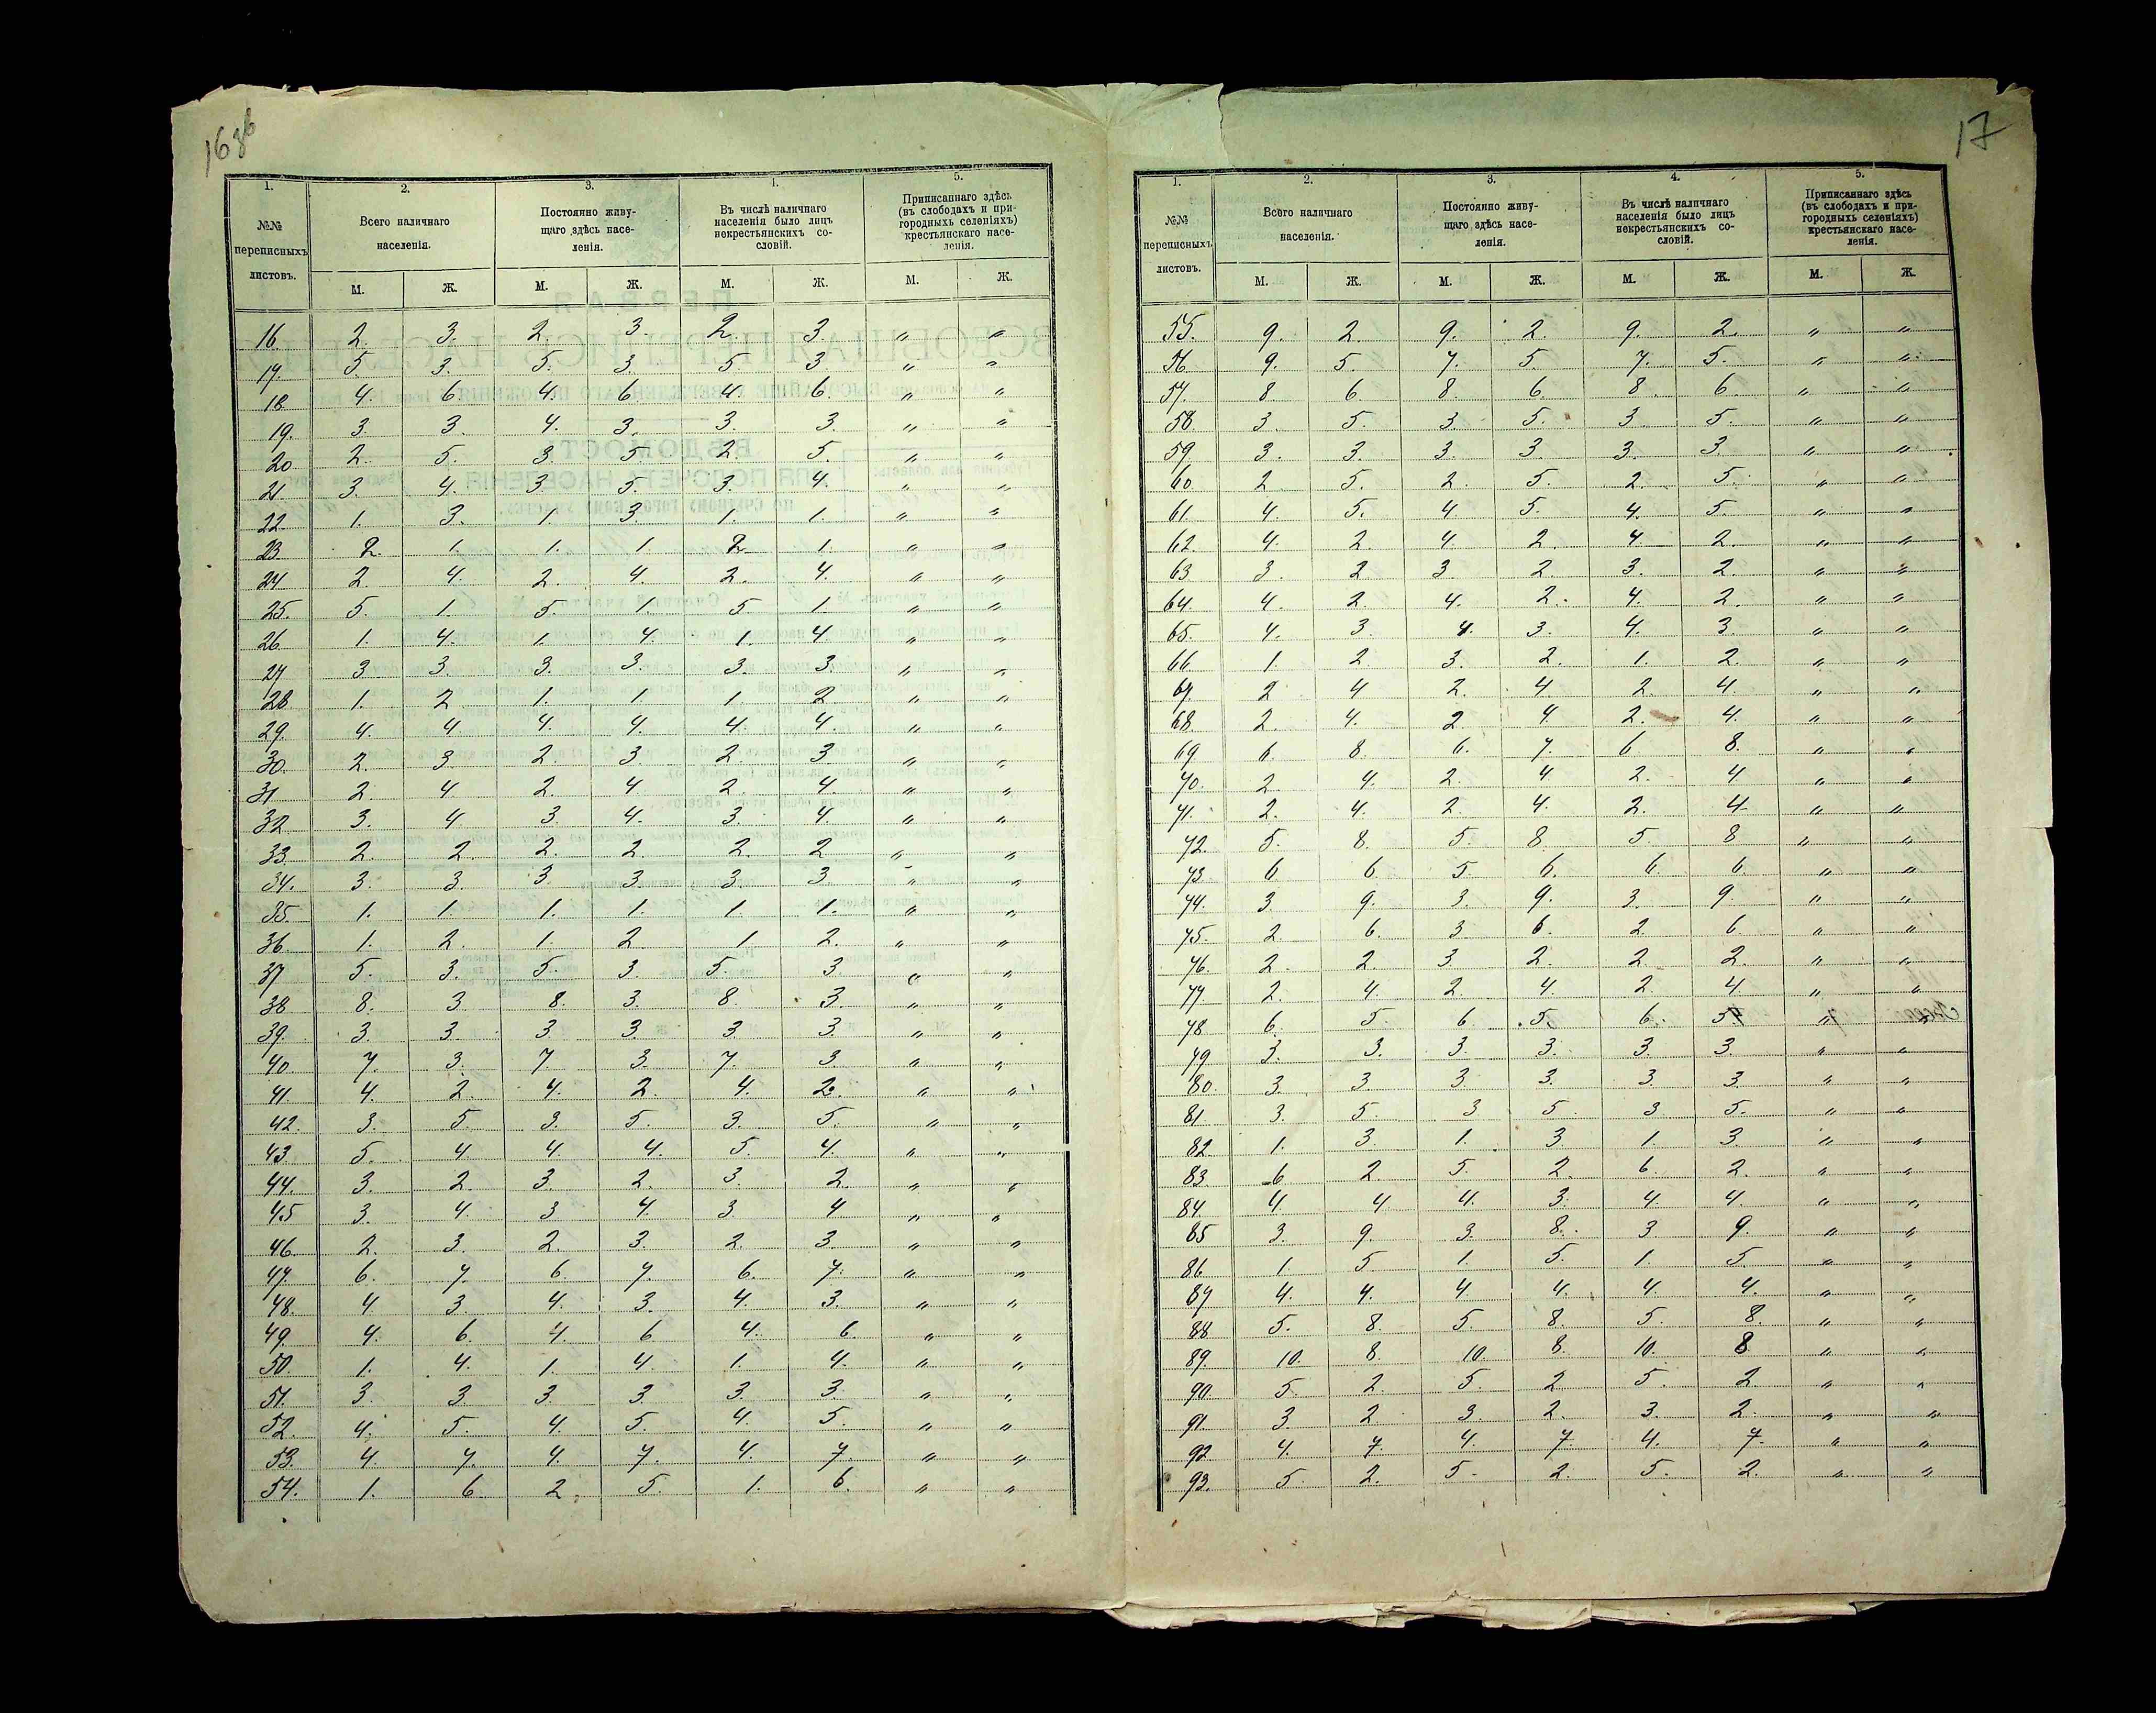 16 зв
1. 2. 3. 4. 5.
№№ переписныхъ листовъ. Всего наличнаго населенія. Постоянно живущаго здѣсь населенія. Въ числѣ наличнаго населенія было лицъ некрестьянскихъ сословій. Приписаннаго здѣсь (въ слободахъ и пригородныхъ селеніяхъ) крестьянскаго населенія.
М. Ж. М. Ж. М. Ж. М. Ж.
16. 2. 3. 2. 3. 2. 3. " "
17. 5. 3. 5. 3. 5 3. " "
18 4. 6 4. 6 4. 6. " "
19. 3. 3. 4. 3. 3. 3. " "
20. 2. 5. 3 5. 2. 5. " "
21. 3. 4. 3. 5. 3. 4. " "
22. 1. 3. 1. 3. 1. 1. " "
23. 2. 1. 1. 1. 2. 1. " "
24 2. 4. 2. 4. 2. 4. " "
25. 5. 1. 5. 1. 5 1. " "
26. 1. 4. 1. 4. 1. 4. " "
27 3 3. 3. 3. 3. 3. " "
28. 1. 2. 1. 1. 1. 2. " "
29. 4. 4 4. 4. 4. 4. " "
30. 2. 3 2. 3. 2. 3. " "
31 2. 4 2. 4. 2. 4. " "
32. 3. 4 3. 4. 3. 4. " "
33. 2. 2. 2. 2. 2. 2 " "
34. 3. 3. 3. 3. 3. 3. " "
35. 1. 1. 1. 1. 1. 1. " "
36. 1. 2. 1. 2 1 2. " "
37 5. 3. 5. 3. 5. 3. " "
38 8. 3 8. 3. 8. 3. " "
39. 3. 3. 3 3. 3. 3. " "
40. 7. 3. 7. 3. 7. 3 " "
41. 4. 2. 4. 2. 4. 2. " "
42. 3. 5 3. 5. 3. 5. " "
43 5. 4 4. 4. 5. 4. " "
44. 3. 2. 3. 2. 3. 2. " "
45 3. 4. 3 4. 3. 4 " "
46. 2. 3. 2. 3. 2. 3. " "
47. 6. 7. 6. 7. 6. 7. " "
48. 4 3. 4. 3. 4. 3. " "
49. 4. 6. 4. 6 4. 6. " "
50. 1. 4. 1. 4. 1. 4. " "
51. 3. 3 3. 3. 3. 3. " "
52. 4. 5. 4. 5. 4. 5. " "
53. 4. 7. 4. 7. 4. 7. " "
54. 1. 6. 2. 5. 1. 6. " "
17
1. 2. 3. 4. 5.
№№ переписныхъ листовъ. Всего наличнаго населенія. Постоянно живущаго здѣсь населенія. Въ числѣ наличнаго населенія было лицъ некрестьянскихъ сословій. Приписаннаго здѣсь (въ слободахъ и пригородныхъ селеніяхъ) крестьянскаго населенія.
М. Ж. М. Ж. М. Ж. М. Ж.
55. 9. 2. 9. 2. 9. 2. " "
56. 9. 5. 7. 5. 7. 5. " "
57. 8. 6. 8. 6. 8. 6. " "
58. 3. 5. 3 5. 3. 5. " "
59. 3. 3. 3. 3. 3. 3. " "
60. 2 5. 2. 5. 2. 5. " "
61. 4. 5. 4. 5. 4. 5. " "
62. 4. 2 4. 2. 4. 2. " "
63 3. 2 3. 2. 3. 2. " "
64. 4. 2. 4. 2. 4. 2. " "
65. 4. 3. 4. 3. 4. 3. " "
66. 1. 2 3. 2. 1. 2. " "
67. 2 4 2. 4 2 4. " "
68. 2. 4. 2 4. 2. 4. " "
69 6. 8. 6. 7. 6. 8. " "
70. 2. 4. 2. 4 2. 4. " "
71. 2. 4. 2. 4. 2. 4. " "
72. 5. 8. 5. 8. 5. 8 " "
73. 6. 6. 5. 6. 6. 6. " "
74. 3. 9. 3. 9. 3. 9. " "
75. 2. 6. 3 6. 2. 6. " "
76. 2. 2. 3 2. 2. 2. " "
77. 2. 4. 2. 4. 2. 4 " "
78. 6. 5. 6. 5. 6. 5. " "
79 3. 3. 3. 3. 3. 3. " "
80. 3. 3 3 3. 3. 3. " "
81 3. 5. 3 5. 3 5. " "
82. 1. 3. 1. 3 1. 3. " "
83 6 2. 5. 2. 6. 2. " "
84. 4. 4 4. 3. 4. 4. " "
85 3. 9. 3. 8. 3. 9. " "
86 1. 5. 1. 5. 1. 5 " "
87 4. 4. 4 4. 4. 4. " "
88 5. 8. 5. 8. 5. 8. " "
89. 10. 8. 10. 8. 10. 8 " "
90. 5. 2 5. 2 5. 2. " "
91. 3. 2 3. 2. 3. 2. " "
92. 4. 7. 4. 7. 4. 7. " "
93. 5. 2. 5. 2. 5. 2. " "